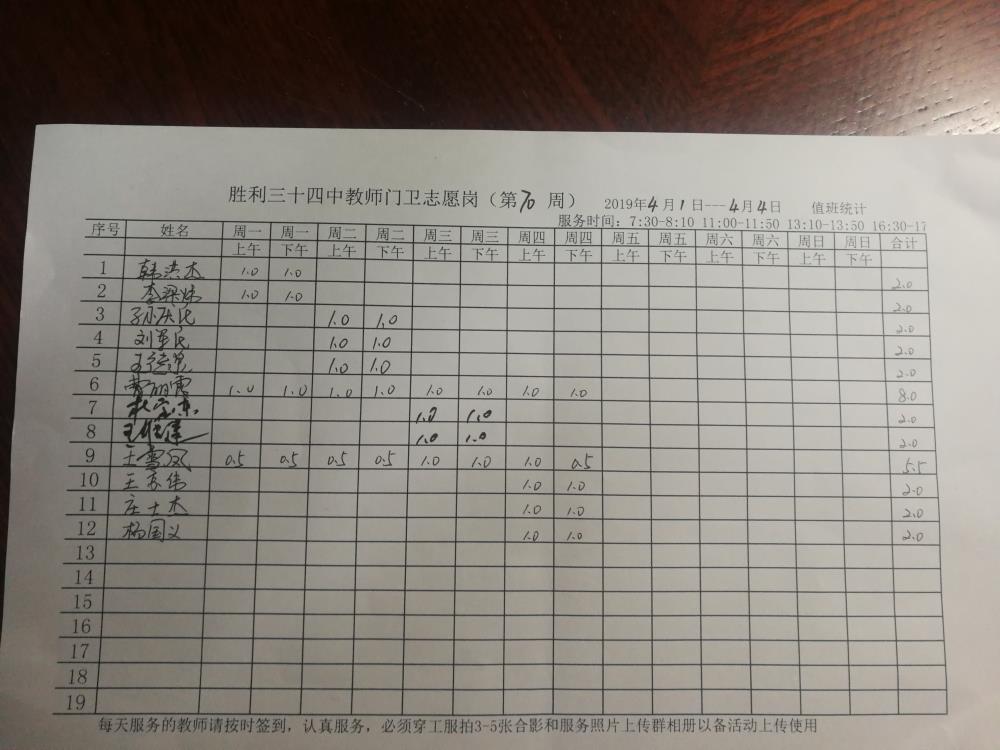 胜利三十四中教师门卫志愿岗（第70 周） 2019年4月1日---4月4日 值班统计
服务时间：7:30-8:10 11:00-11:50 13:10-13:50 16:30-17
序号 姓名 周一 周一 周二 周二 周三 周三 周四 周四 周五 周五 周六 周六 周日 周日 合计
上午 下午 上午 下午 上午 下午 上午 下午 上午 下午 上午 下午 上午 下午
1 韩洪杰 1.0 1.0 2.0
2 李 1.0 1.0 2.0
3 孙庆民 1.0 1.0 2.0
4 刘军民 1.0 1.0 2.0
5 王 1.0 1.0 2.0
6 1.0 1.0 1.0 1.0 1.0 1.0 1.0 1.0 8.0
7 1.0 1.0 2.0
8 王 1.0 1.0 2.0
9 王雪凤 0.5 0.5 0.5 0.5 1.0 1.0 1.0 0.5 5.5
10 王 伟 1.0 1.0 2.0
11 庄士杰 1.0 1.0 2.0
12 杨国义 1.0 1.0 2.0
13
14
15
16
17
18
19
每天服务的教师请按时签到，认真服务，必须穿工服拍3-5张合影和服务照片上传群相册以备活动上传使用